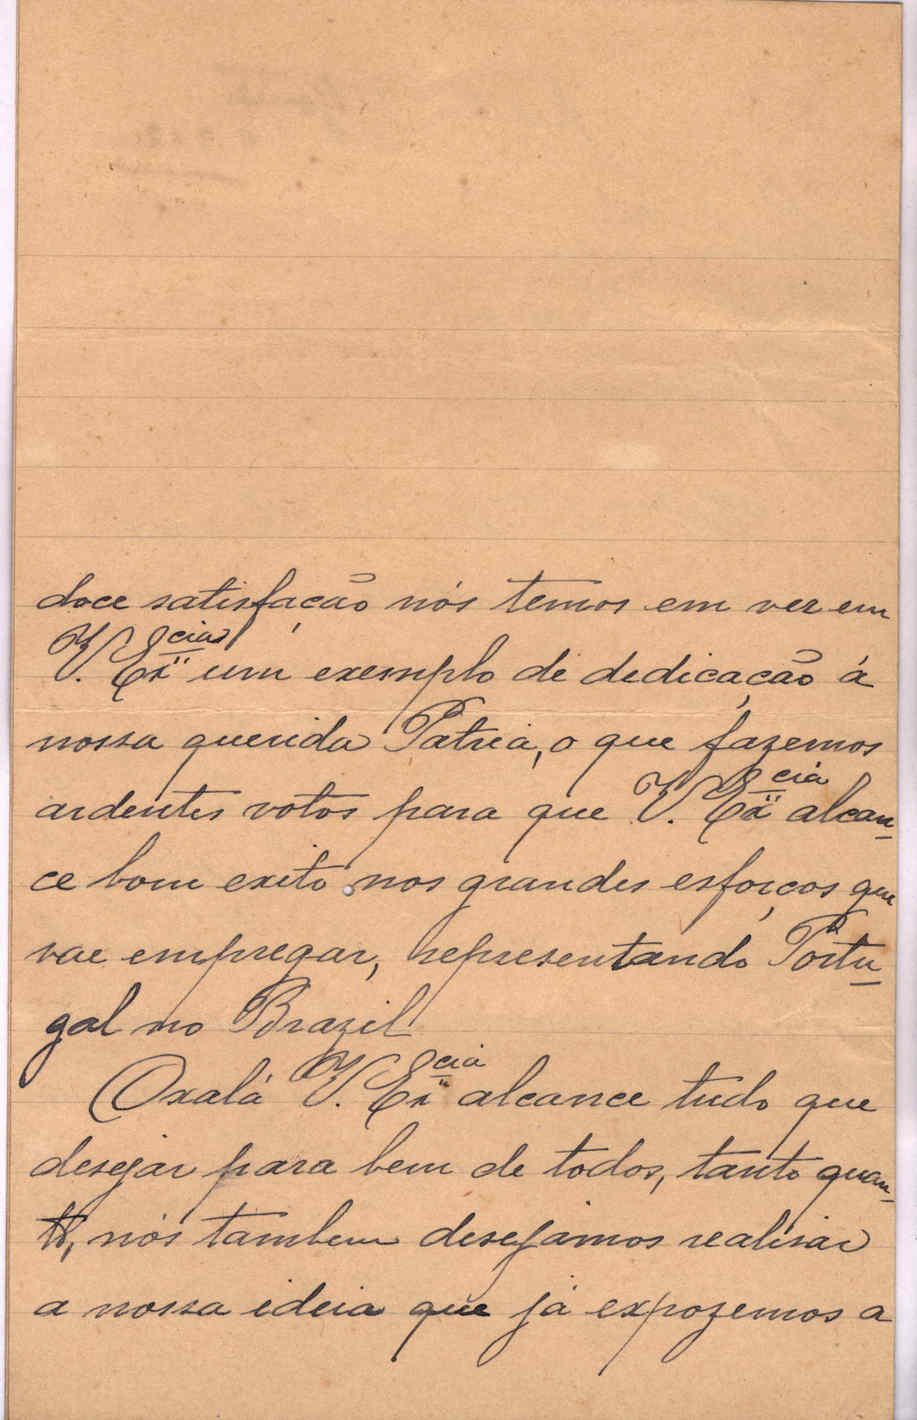 doce satisfação nós temos em ver em
V. Ex.cia um exemplo de dedicação á
nossa querida Patria, o que fazemos
ardentes votos para que V. Ex.cia alcan-
ce bom exito nos grandes esforços que
vae empregar, representando Portu-
gal no Brazil
Oxalá V. Ex.cia alcance tudo que
desejar para bem de todos, tanto quan-
to, nós tambem desejâmos realisar
a nossa ideia que já expozemos a